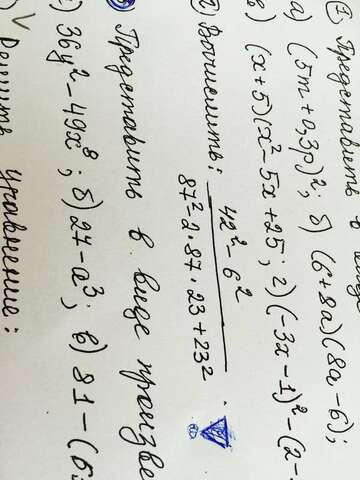 ① Представить в виде
а) (5m + 0,3p)²; б) (6+8a)(8a-6);
в) (x+5)(x²-5x+25; г) (-3x-1)²-(2-
2) Вычислить: 42² - 6² / 87² - 2·87·23 + 23² .
Представить в виде произве
36y² - 49x⁸; б) 27-a³; в) 81-(6
) √ Решить уравнение: